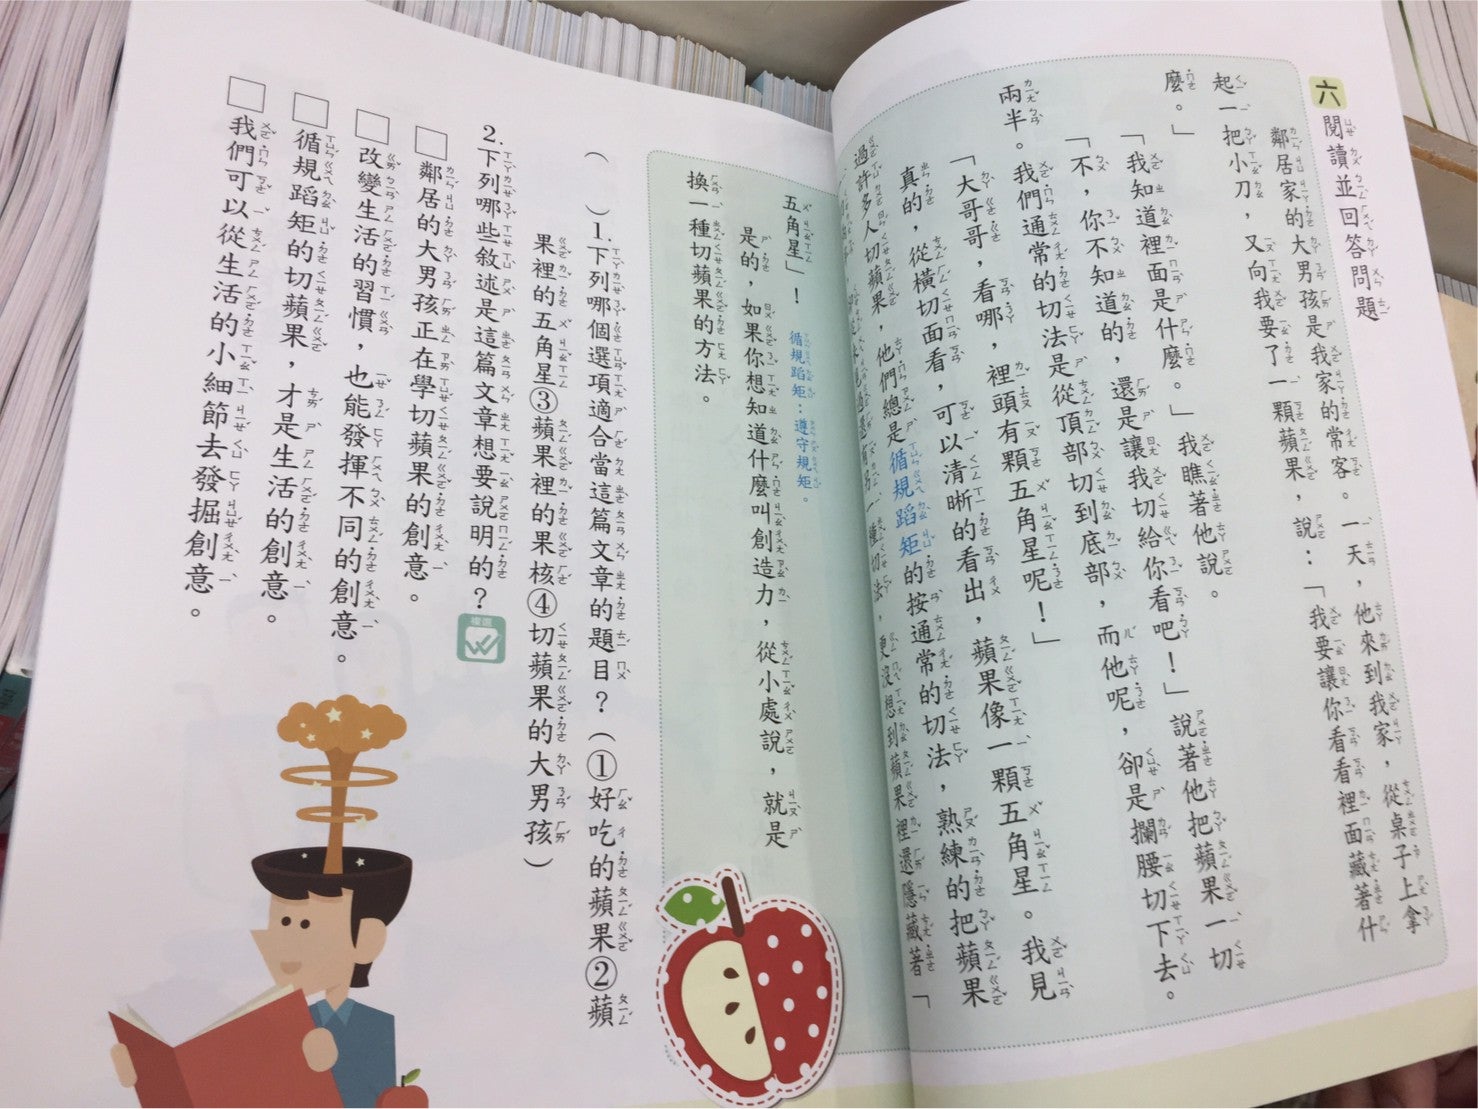 六 閱讀並回答問題
鄰居家的大男孩是我家的常客。一天，他來到我家，從桌子上拿
起一把小刀，又向我要了一顆蘋果，說：「我要讓你看看裡面藏著什
麼。」
「我知道裡面是什麼。」我瞧著他說。
「不，你不知道的，還是讓我切給你看吧！」說著他把蘋果一切
兩半。我們通常的切法是從頂部切到底部，而他呢，卻是攔腰切下去。
「大哥哥，看哪，裡頭有顆五角星呢！」
真的，從橫切面看，可以清晰的看出，蘋果像一顆五角星。我見
過許多人切蘋果，他們總是循規蹈矩的按通常的切法，熟練的把蘋果
一種切法，更沒想到蘋果裡還隱藏著「
五角星」！
循規蹈矩：遵守規矩。
是的，如果你想知道什麼叫創造力，從小處說，就是
換一種切蘋果的方法。
（　）1.下列哪個選項適合當這篇文章的題目？（①好吃的蘋果②蘋
果裡的五角星③蘋果裡的果核④切蘋果的大男孩）
2.下列哪些敘述是這篇文章想要說明的？複選
□鄰居的大男孩正在學切蘋果的創意。
□改變生活的習慣，也能發揮不同的創意。
□循規蹈矩的切蘋果，才是生活的創意。
□我們可以從生活的小細節去發掘創意。